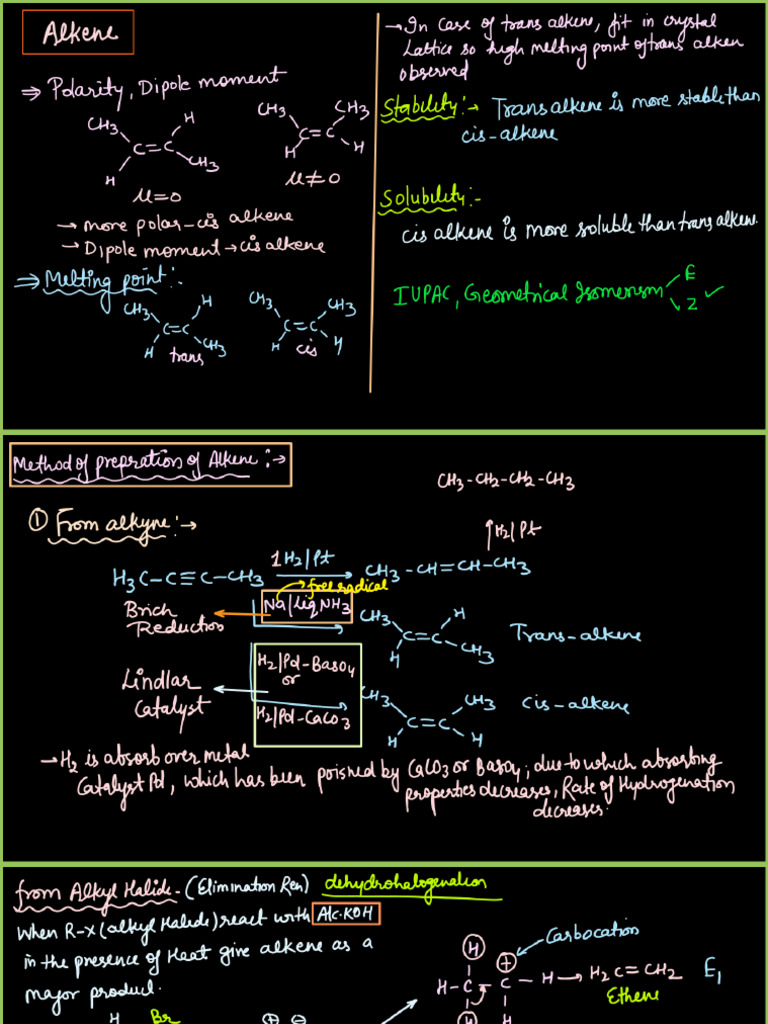 Alkene
⇒ Polarity, Dipole moment
CH3 H
C=C
H CH3
μ=0
CH3 CH3
C=C
H H
μ≠0
→ more polar-cis alkene
→ Dipole moment → cis alkene
⇒ Melting point:-
CH3 H
C=C
H CH3
trans
CH3 CH3
C=C
H H
cis
→ In case of trans alkene, fit in crystal
Lattice so high melting point of trans alken
observed
Stability:→ Trans alkene is more stable than
cis-alkene
Solubility:-
cis alkene is more soluble than trans alkene.
IUPAC, Geometrical Isomerism E
Z ✓
Method of prepration of Alkene:→
CH3-CH2-CH2-CH3
① From alkyne:→
↑H2/Pt
H3C-C≡C-CH3 1 H2/Pt CH3-CH=CH-CH3
free radical
Brich
Reduction
Na/Liq NH3
CH3 H
C=C
H CH3
Trans-alkene
Lindlar
Catalyst
H2/Pd-BaSO4
or
H2/Pd-CaCO3
CH3 CH3
C=C
H H
cis-alkene
→ H2 is absorb over metal
Catalyst Pd, which has been poished by CaCO3 or BaSO4; due to which absorbing
properties decreases, Rate of Hydrogenation
decreases.
from Alkyl Halide-(Elimination Rxn) dehydrohalogenation
When R-X (alkyl Halide) react with Alc.KOH
in the presence of Heat give alkene as a
major product.
Carbocation
H +
H-C-C-H → H2C=CH2 E1
H H
Ethene
H Br
⊕ ⊖